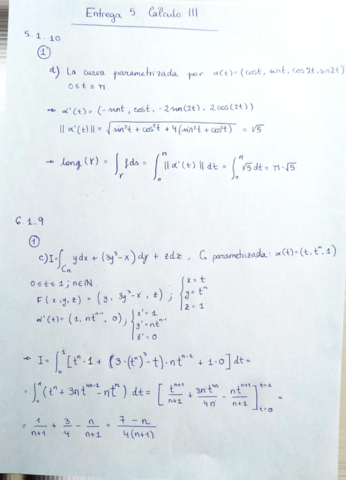 Entrega 5 Cálculo III
5.1.10
①
d) La curva parametrizada por α(t)=(cost, sint, cos2t, sin2t)
0≤t≤π.
→ α'(t) = (-sint, cost, -2sin(2t), 2cos(2t))
||α'(t)|| = √(sin²t + cos²t + 4(sin²t + cos²t)) = √5
→ long(γ) = ∫_γ fds = ∫_0^π ||α'(t)|| dt = ∫_0^π √5 dt = π·√5
6.1.9
①
c) I = ∫_{C_n} ydx + (3y³-x)dy + zdz, C_n parametrizada: α(t) = (t, tⁿ, 1)
0≤t≤1; n∈ℕ
F(x,y,z) = (y, 3y³-x, z); { x=t y=tⁿ z=1
α'(t) = (1, ntⁿ⁻¹, 0); { x'=1 y'=ntⁿ⁻¹ z'=0
→ I = ∫_0^1 [tⁿ·1 + (3·(tⁿ)³-t)·ntⁿ⁻¹ + 1·0] dt =
= ∫_0^1 (tⁿ + 3nt⁴ⁿ⁻¹ - ntⁿ) dt = [tⁿ⁺¹/(n+1) + 3nt⁴ⁿ/4n - ntⁿ⁺¹/(n+1)]_{t=0}^{t=1} =
= 1/(n+1) + 3/4 - n/(n+1) = (7-n)/(4(n+1))